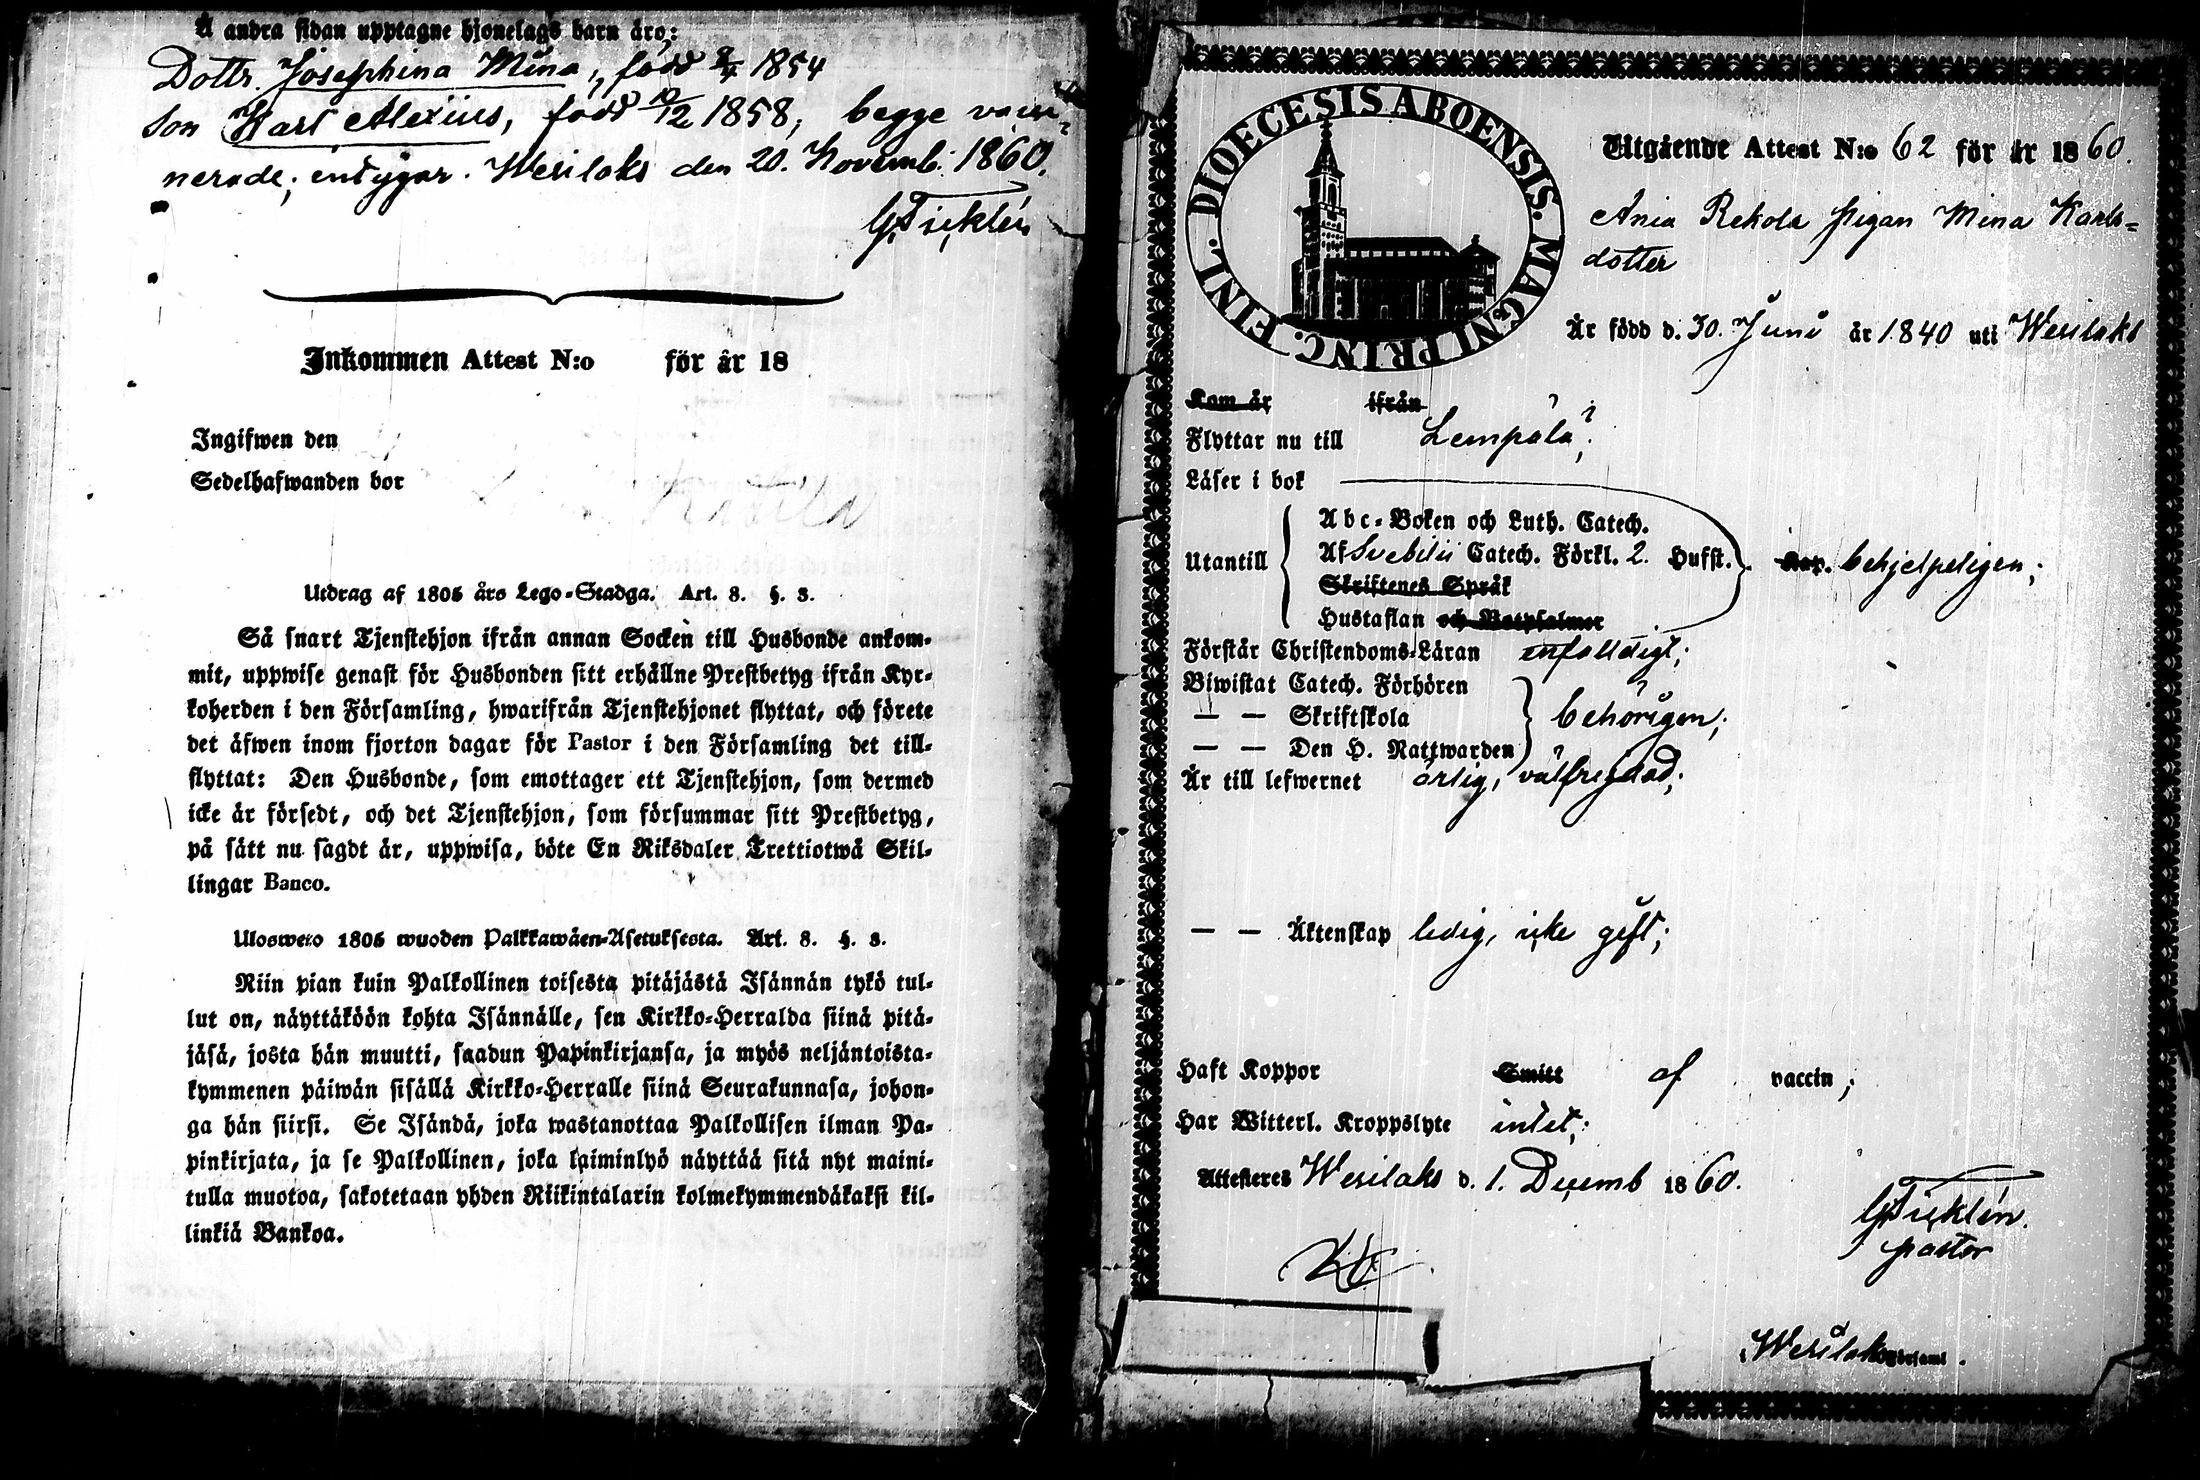 A andra sidan upptagne hjonelags barn äro;
Dottr. Josephina Mina, född 2/4 1854
Son Karl Alexius, född 12/2 1858; begge vacci-
nerade; intygar. Wesilaks den 20. Novemb. 1860.
G. Ticklén
Inkommen Attest N:o för år 18
Ingifwen den
Sedelhafwanden bor
Utdrag af 1805 års Lego-Stadga. Art. 8. §. 3.
Så snart Tjenstehjon ifrån annan Socken till Husbonde ankom-
mit, uppwise genast för Husbonden sitt erhållne Prestbetyg ifrån Kyr-
koherden i den Församling, hwarifrån Tjenstehjonet flyttat, och förete
det äfwen inom fjorton dagar för Pastor i den Församling det till-
flyttat: Den Husbonde, som emottager ett Tjenstehjon, som dermed
icke är försedt, och det Tjenstehjon, som försummar sitt Prestbetyg,
på sätt nu sagdt är, uppwisa, böte En Riksdaler Trettiotwå Skil-
lingar Banco.
Ulosweto 1805 wuoden Palkkawäen-Asetuksesta. Art. 8. §. 3.
Niin pian kuin Palkollinen toisesta pitäjästä Isännän tykö tul-
lut on, näyttäköön kohta Isännälle, sen Kirkko-Herralda siinä pitä-
jäsä, josta hän muutti, saadun Papinkirjansa, ja myös neljäntoista-
kymmenen päiwän sisällä Kirkko-Herralle siinä Seurakunnasa, johon-
ga hän siirsi. Se Isändä, joka wastanottaa Palkollisen ilman Pa-
pinkirjata, ja se Palkollinen, joka laiminlyö näyttää sitä nyt maini-
tulla muotoa, sakotetaan yhden Riikintalarin kolmekymmendäkaksi kil-
linkiä Bankoa.
DIOECESIS ABOENSIS. MAGNI PRINC. FINL.
Utgående Attest N:o 62 för år 1860.
Ania Rekola pigan Mina Karls-
dotter
Är född d. 30. Juni år 1840 uti Wesilaks
Kom år ifrån
Flyttar nu till Lempälä;
Läser i bok
Utantill
Abc-Boken och Luth. Catech.
Af Svebilii Catech. Förkl. 2. Hufst. Kap. behjelpeligen;
Skriftenes Språk
Hustaflan och Botpsalmer
Förstår Christendoms-Läran enfalldigt;
Biwistat Catech. Förhören
— — Skriftskola behörigen;
— — Den H. Nattwarden
Är till lefwernet ärlig, välfrejdad;
— — Äktenskap ledig, icke gift;
Haft Koppor Smitt af vaccin;
Har Witterl. Kroppslyte intet;
Attesteres Wesilaks d. 1. Decemb 1860.
G. Ticklén.
pastor
i Wesilaks Församl.